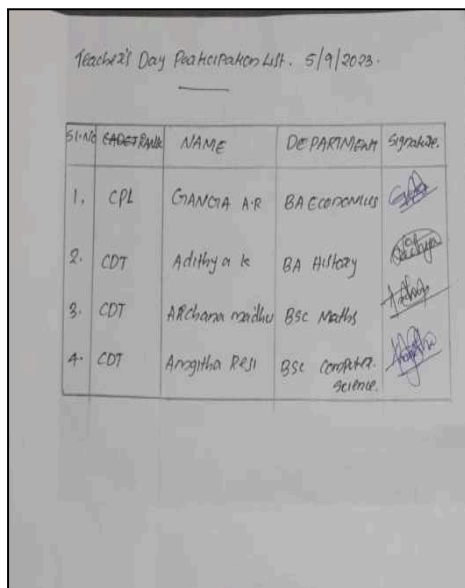 Teacher's Day Participation List. 5/9/2023.
Sl.No CADET RANK NAME DEPARTMENT Signature.
1. CPL GANGA A.R BA Economics
2. CDT Adithya k BA History
3. CDT ARchana madhu BSc Maths
4. CDT Resi BSc Computer
Science.